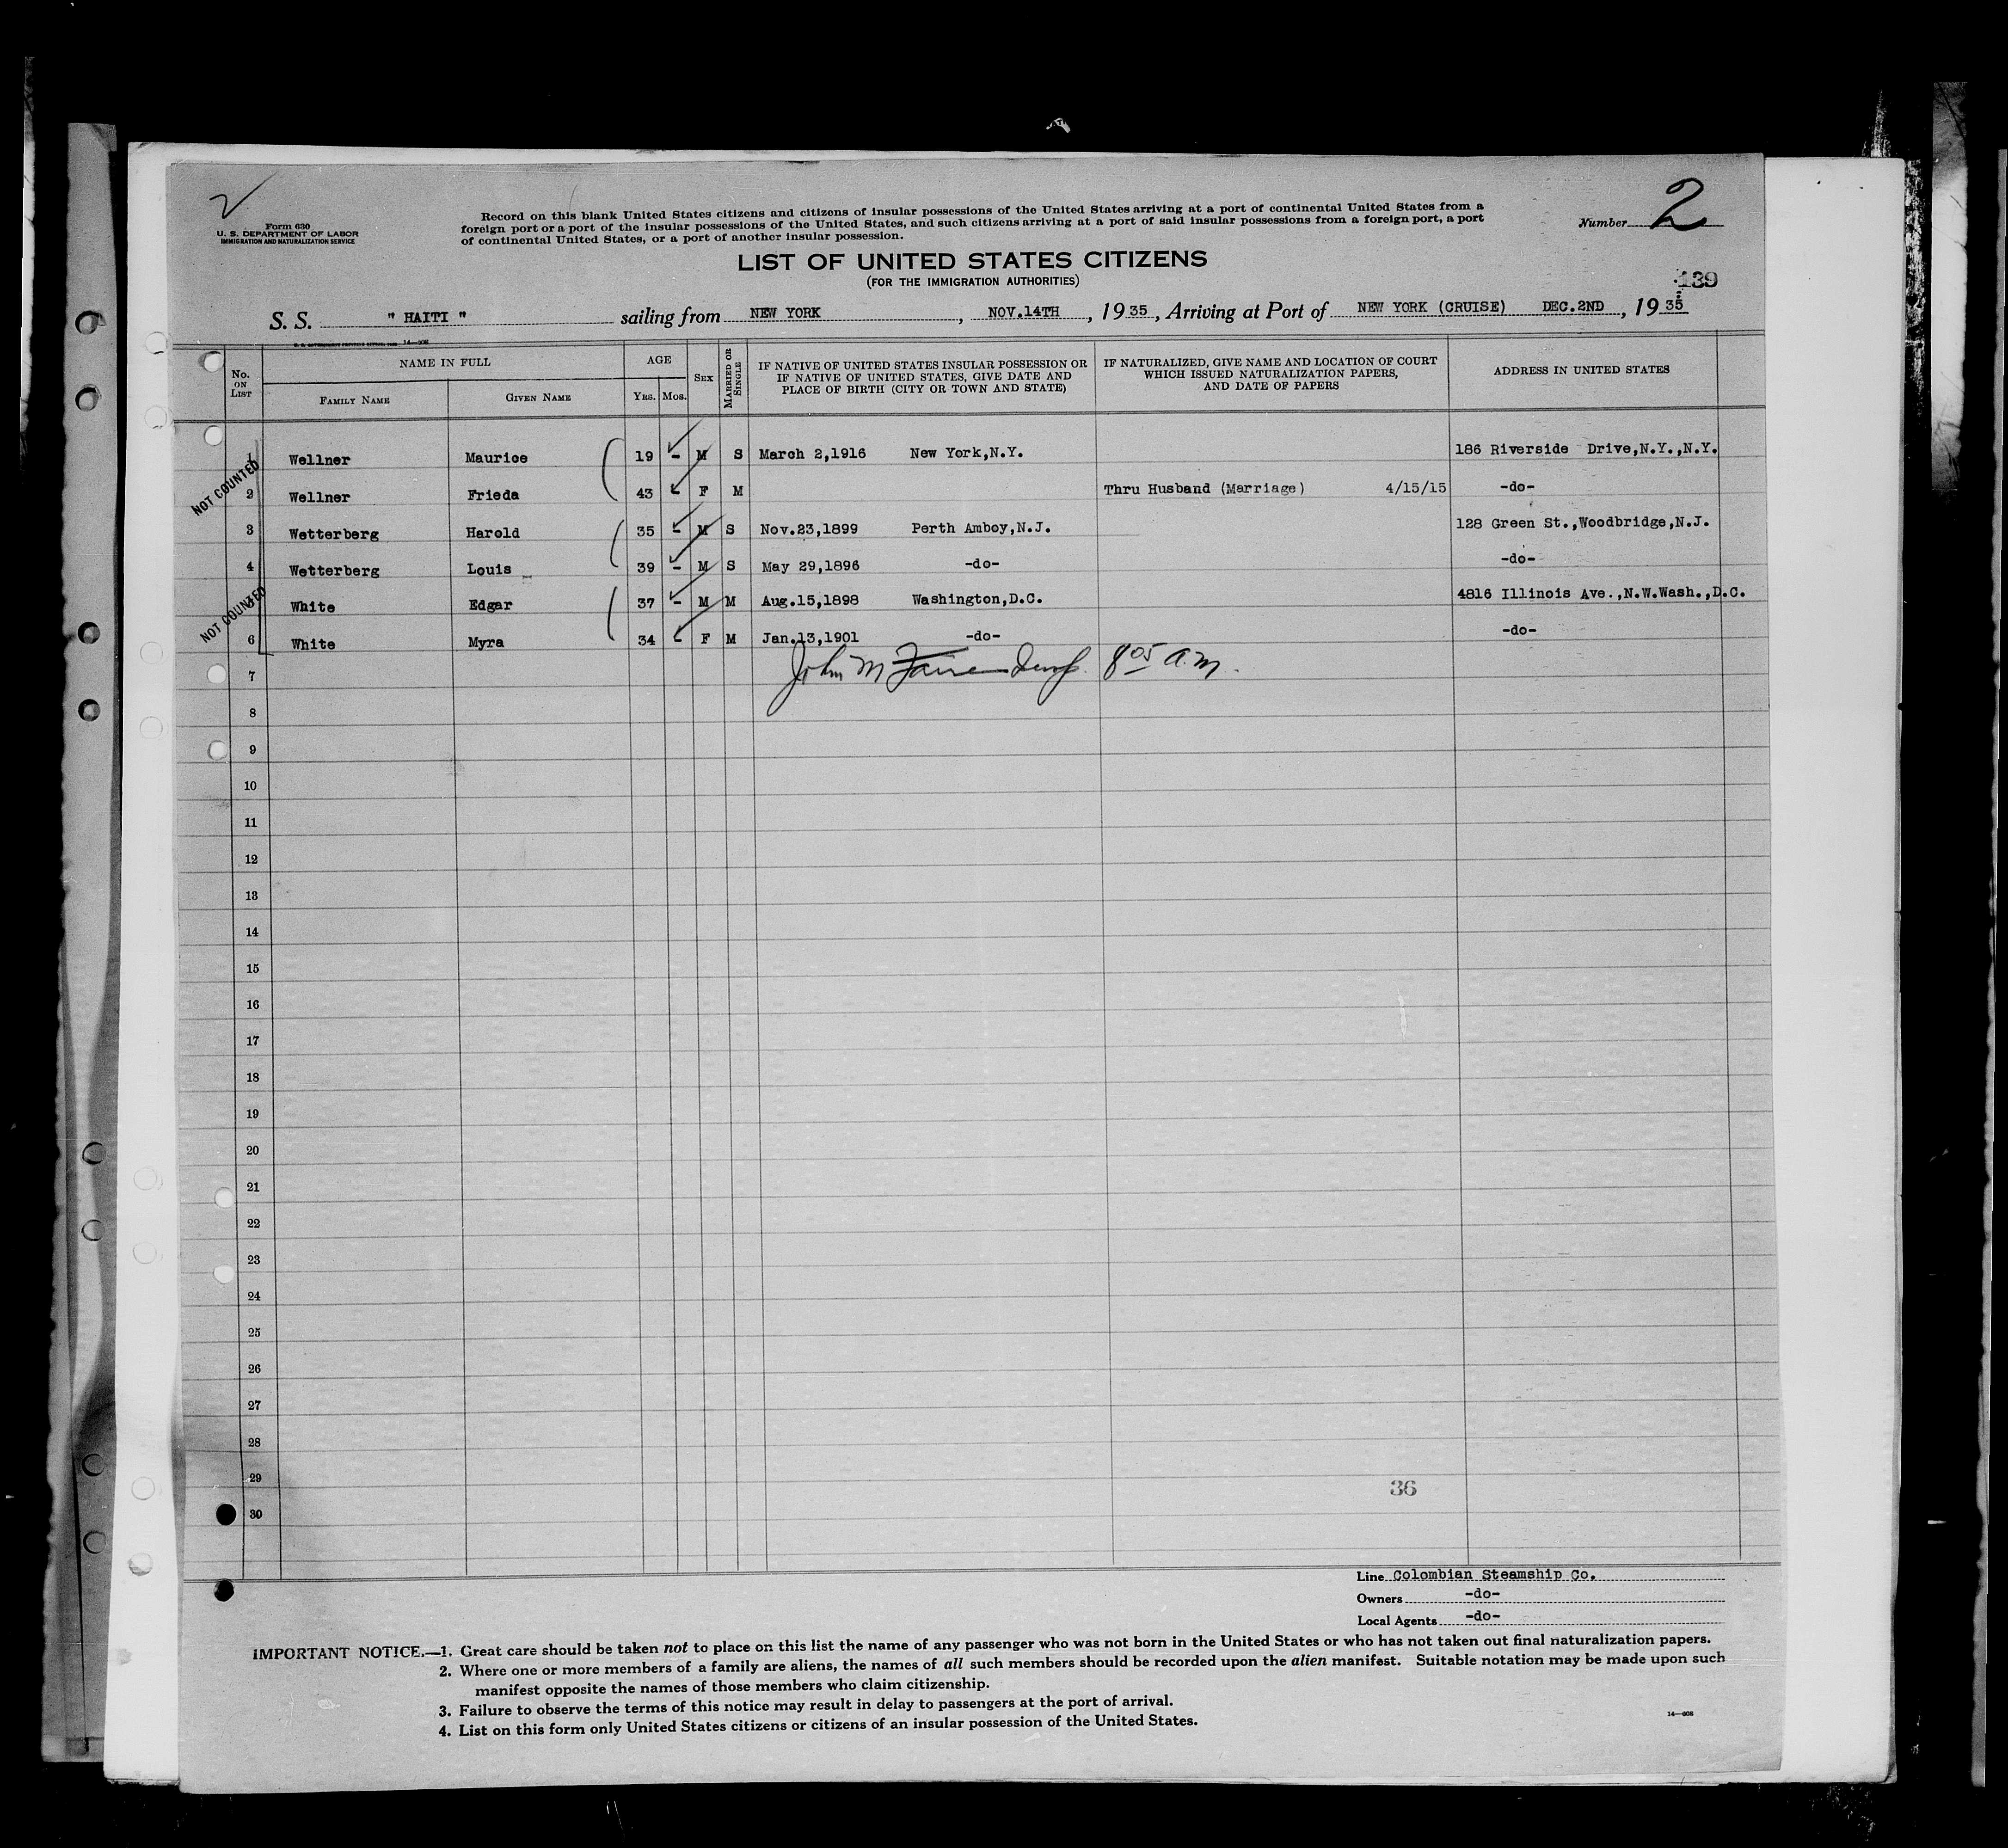 Form 630
U. S. DEPARTMENT OF LABOR
IMMIGRATION AND NATURALIZATION SERVICE
Record on this blank United States citizens and citizens of insular possessions of the United States arriving at a port of continental United States from a
foreign port or a port of the insular possessions of the United States, and such citizens arriving at a port of said insular possessions from a foreign port, a port
of continental United States, or a port of another insular possession.
Number 2
LIST OF UNITED STATES CITIZENS
(FOR THE IMMIGRATION AUTHORITIES)
139
S. S. " HAITI " sailing from NEW YORK, NOV.14TH, 1935, Arriving at Port of NEW YORK (CRUISE) DEC.2ND, 1935
No. ON LIST
NAME IN FULL
FAMILY NAME
GIVEN NAME
AGE
YRS. MOS.
SEX
MARRIED OR SINGLE
IF NATIVE OF UNITED STATES INSULAR POSSESSION OR
IF NATIVE OF UNITED STATES, GIVE DATE AND
PLACE OF BIRTH (CITY OR TOWN AND STATE)
IF NATURALIZED, GIVE NAME AND LOCATION OF COURT
WHICH ISSUED NATURALIZATION PAPERS,
AND DATE OF PAPERS
ADDRESS IN UNITED STATES
1 Wellner Maurice 19 - M S March 2,1916 New York,N.Y. 186 Riverside Drive,N.Y.,N.Y.
NOT COUNTED
2 Wellner Frieda 43 - F M Thru Husband (Marriage) 4/15/15 -do-
3 Wetterberg Harold 35 - M S Nov.23,1899 Perth Amboy,N.J. 128 Green St.,Woodbridge,N.J.
4 Wetterberg Louis 39 - M S May 29,1896 -do- -do-
NOT COUNTED
5 White Edgar 37 - M M Aug.15,1898 Washington,D.C. 4816 Illinois Ave.,N.W.Wash.,D.C.
6 White Myra 34 - F M Jan.13,1901 -do- -do-
7 John M 8 05 a.m.
8
9
10
11
12
13
14
15
16
17
18
19
20
21
22
23
24
25
26
27
28
29
36
30
Line Colombian Steamship Co.
Owners -do-
Local Agents -do-
IMPORTANT NOTICE.—1. Great care should be taken not to place on this list the name of any passenger who was not born in the United States or who has not taken out final naturalization papers.
2. Where one or more members of a family are aliens, the names of all such members should be recorded upon the alien manifest. Suitable notation may be made upon such
manifest opposite the names of those members who claim citizenship.
3. Failure to observe the terms of this notice may result in delay to passengers at the port of arrival.
4. List on this form only United States citizens or citizens of an insular possession of the United States.